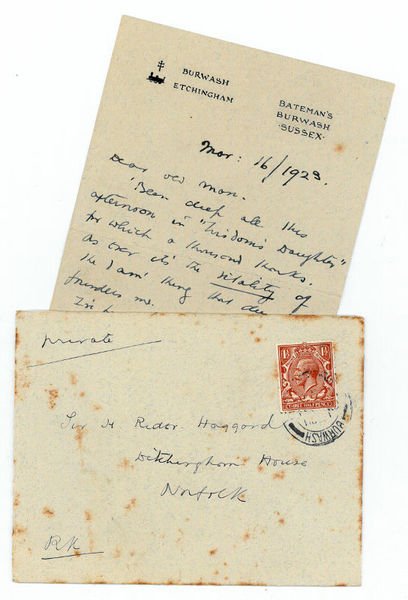 BURWASH
ETCHINGHAM
BATEMAN'S
BURWASH
·SUSSEX·
Mar: 16/1923.
Dear old man.
'Been deep all this
afternoon in "Wisdom's Daughter"
for which a thousand thanks.
As ever it's the vitality of
the d—d thing that
founders me.
private
1½ 1½
THREE HALFPENCE
BURWASH
Sir H Rider Haggard
Ditchingham House
Norfolk
RK